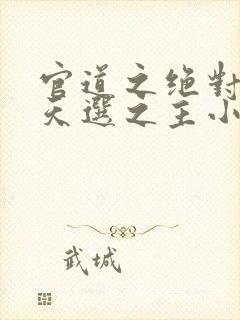 官道之绝對
天選之主小
武城